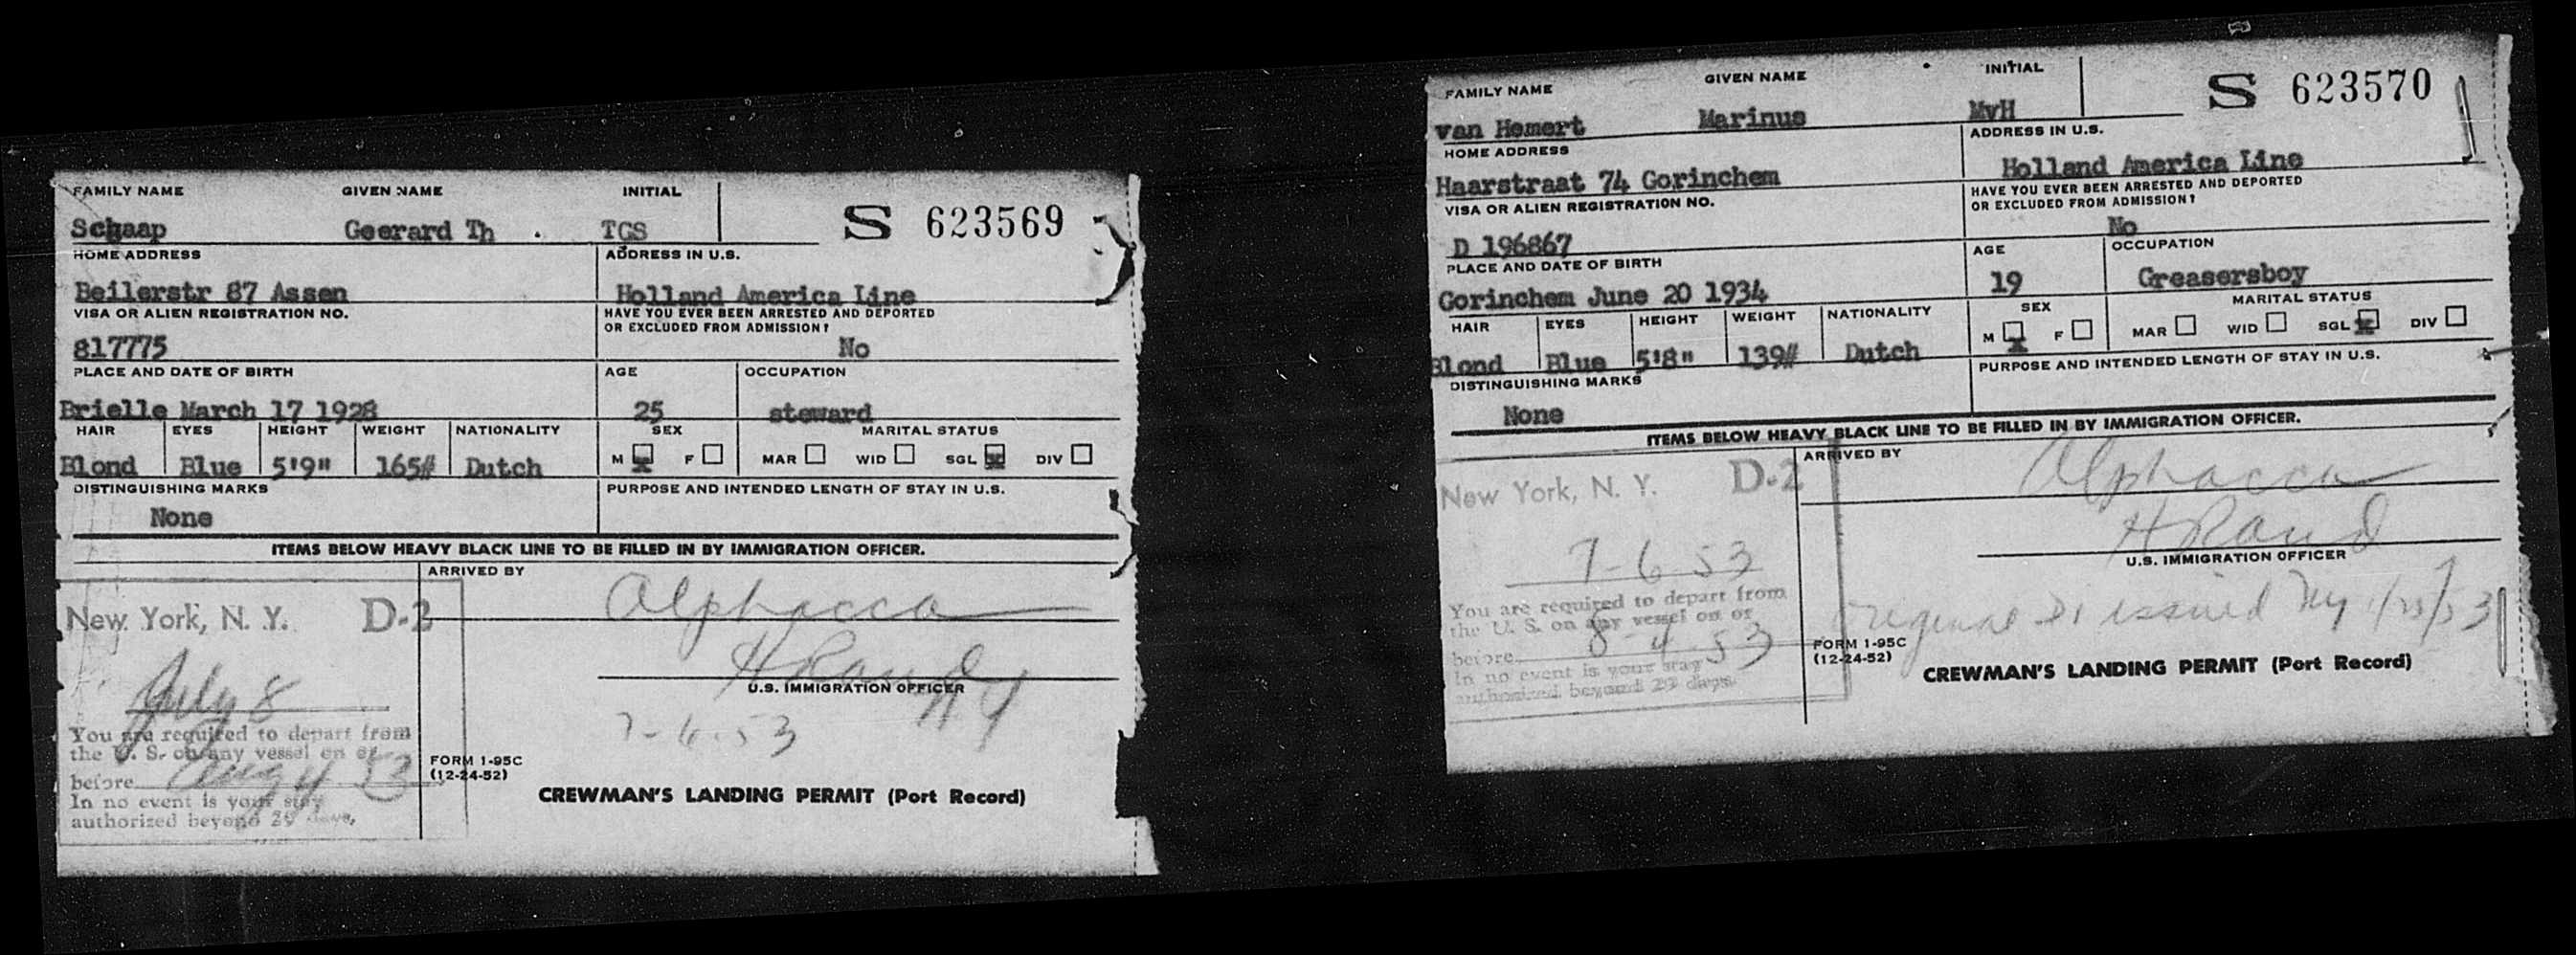 FAMILY NAME GIVEN NAME INITIAL
Schaap Geerard Th . TGS S 623569
HOME ADDRESS ADDRESS IN U.S.
Beilerstr 87 Assen Holland America Line
VISA OR ALIEN REGISTRATION NO. HAVE YOU EVER BEEN ARRESTED AND DEPORTED
OR EXCLUDED FROM ADMISSION?
817775 No
PLACE AND DATE OF BIRTH AGE OCCUPATION
Brielle March 17 1928 25 steward
HAIR EYES HEIGHT WEIGHT NATIONALITY SEX MARITAL STATUS
Blond Blue 5'9" 165# Dutch M X F MAR WID SGL X DIV
DISTINGUISHING MARKS PURPOSE AND INTENDED LENGTH OF STAY IN U.S.
None
ITEMS BELOW HEAVY BLACK LINE TO BE FILLED IN BY IMMIGRATION OFFICER.
ARRIVED BY
New York, N. Y. D-2 Alphacca
July 8 H Rand
U.S. IMMIGRATION OFFICER
NY
7-6-53
You are required to depart from
the U. S. on any vessel on or
before Aug 4 53
In no event is your stay
authorized beyond 29 days.
FORM I-95C
(12-24-52)
CREWMAN'S LANDING PERMIT (Port Record)
FAMILY NAME GIVEN NAME INITIAL
van Hemert Marinus MvH S 623570
HOME ADDRESS ADDRESS IN U.S.
Haarstraat 74 Gorinchem Holland America Line
VISA OR ALIEN REGISTRATION NO. HAVE YOU EVER BEEN ARRESTED AND DEPORTED
OR EXCLUDED FROM ADMISSION?
D 196867 No
PLACE AND DATE OF BIRTH AGE OCCUPATION
Gorinchem June 20 1934 19 Greasersboy
HAIR EYES HEIGHT WEIGHT NATIONALITY SEX MARITAL STATUS
Blond Blue 5'8" 139# Dutch M X F MAR WID SGL X DIV
DISTINGUISHING MARKS PURPOSE AND INTENDED LENGTH OF STAY IN U.S.
None
ITEMS BELOW HEAVY BLACK LINE TO BE FILLED IN BY IMMIGRATION OFFICER.
ARRIVED BY
New York, N. Y. D-2 Alphacca
7-6-53 H Rand
U.S. IMMIGRATION OFFICER
You are required to depart from
the U. S. on any vessel on or
before 8-4-53
In no event is your stay
authorized beyond 29 days.
original D1 issued NY
FORM I-95C
(12-24-52)
CREWMAN'S LANDING PERMIT (Port Record)